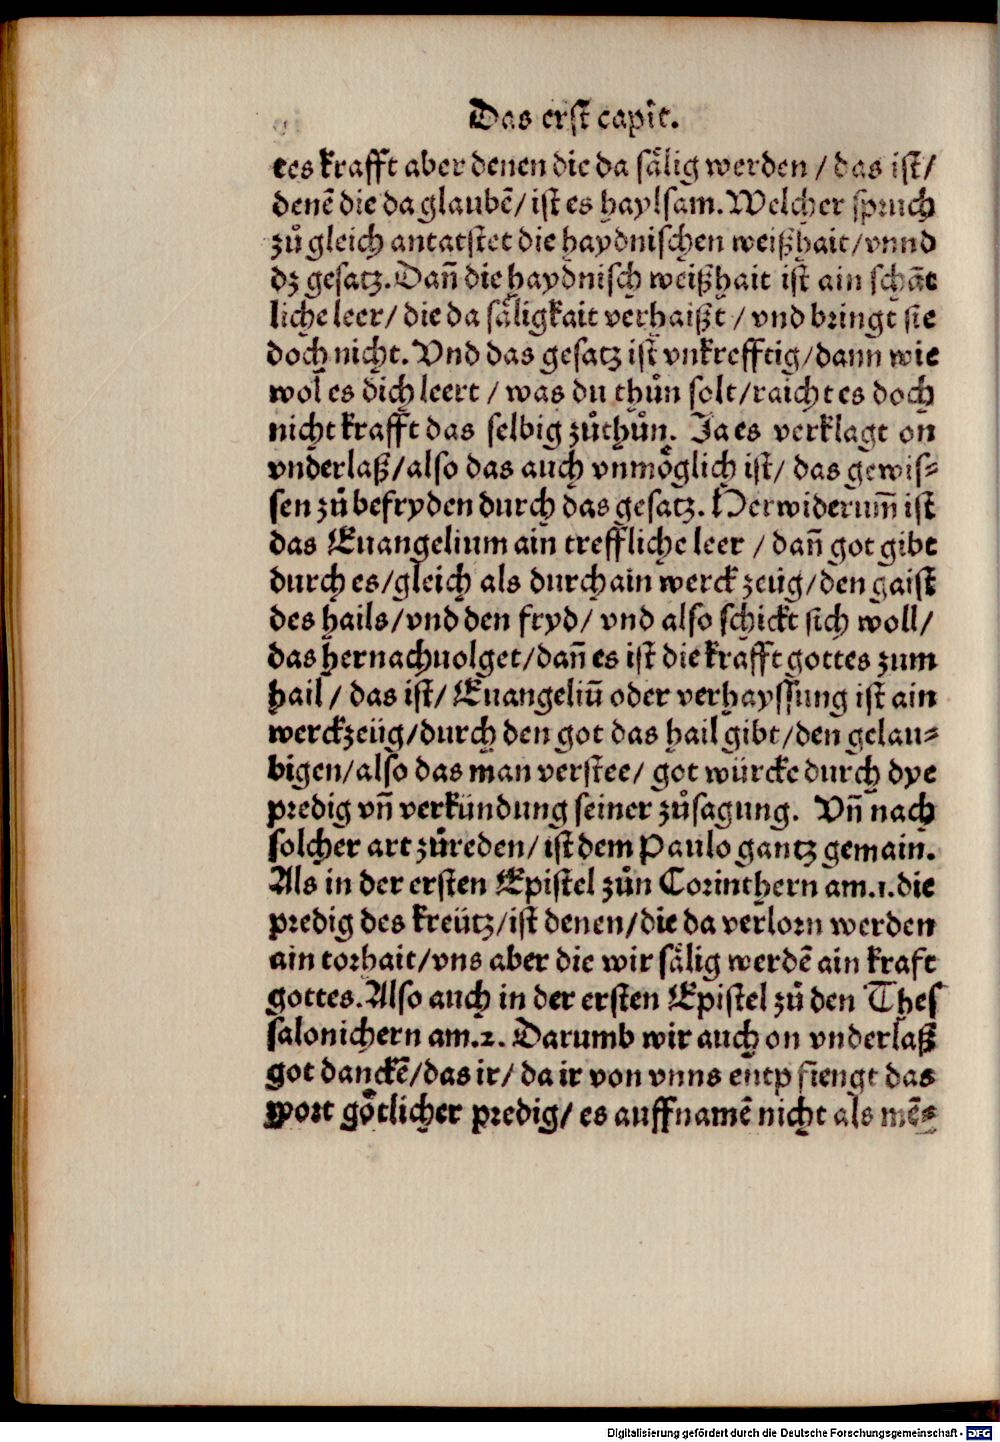 Das erst capit.
tes krafft aber denen die da sålig werden / das ist/
denē die da glaubē/ ist es haylsam. Welcher spruch
zů gleich antatstet die haydnischen weißhait/ vnnd
dz gesatz. Dañ die haydnisch weißhait ist ain schāt
liche leer/ die da såligkait verhaißt / vnd bringt sie
doch nicht. Vnd das gesatz ist vnkrefftig/ dann wie
wol es dich leert / was du thůn solt/ raicht es doch
nicht krafft das selbig zůthůn. Ja es verklagt on
vnderlaß/ also das auch vnmöglich ist/ das gewis⸗
sen zů befryden durch das gesatz. Herwiderum̄ ist
das Euangelium ain treffliche leer / dañ got gibt
durch es/ gleich als durch ain werck zeüg/ den gaist
des hails/ vnd den fryd/ vnd also schickt sich woll/
das hernachuolget/ dañ es ist die krafft gottes zum
hail / das ist/ Euangeliū oder verhayssung ist ain
werckzeüg/ durch den got das hail gibt/ den gelau⸗
bigen/ also das man verstee/ got würcke durch dye
predig vñ verkündung seiner zůsagung. Vñ nach
solcher art zůreden/ ist dem Paulo gantz gemain.
Als in der ersten Epistel zůn Corinthern am.1. die
predig des kreütz/ ist denen/ die da verlorn werden
ain torhait/ vns aber die wir sålig werdē ain kraft
gottes. Also auch in der ersten Epistel zů den Thes
salonichern am.2. Darumb wir auch on vnderlaß
got danckē/ das ir/ da ir von vnns entpfiengt das
wort götlicher predig/ es auffnamē nicht als mē⸗
Digitalisierung gefördert durch die Deutsche Forschungsgemeinschaft - DFG